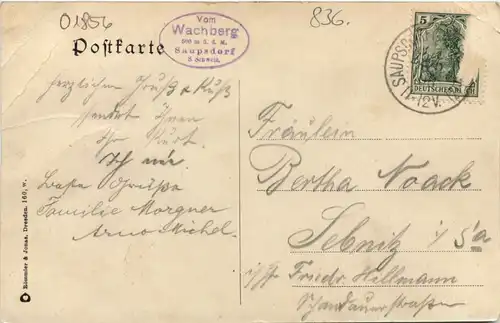 01856
836.
Postkarte
Vom
Wachberg
500 m ü. d. M.
Saupsdorf
S. Schweiz.
5
DEUTSCHES REICH
SAUPSDORF
herzlichen Gruß & Kuß
sendet Ihnen
Ihr Kurt.
Ich
Beste Grüße
Familie Morgner
Arno Michel.
Fräulein
Bertha Noack
Sebnitz i/Sa
Friedr. Hellmann
Schandauerstraße
Römmler & Jonas, Dresden. 160, w.